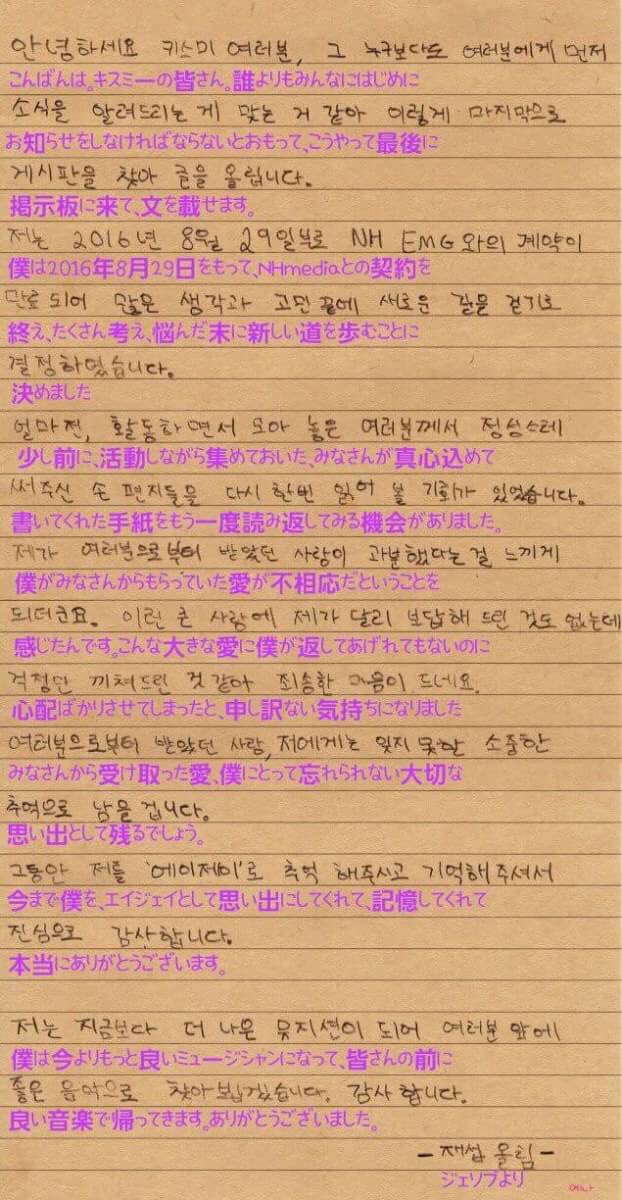 안녕하세요 키스미 여러분, 그 누구보다도 여러분에게 먼저
こんばんは。キスミーの皆さん。誰よりもみんなにはじめに
소식을 알려드리는 게 맞는 거 같아 이렇게 마지막으로
お知らせをしなければならないとおもって、こうやって最後に
게시판을 찾아 글을 올립니다.
掲示板に来て、文を載せます。
저는 2016년 8월 29일부로 NH EMG와의 계약이
僕は2016年8月29日をもって、NHmediaとの契約を
만료 되어 많은 생각과 고민 끝에 새로운 길을 걷기로
終え、たくさん考え、悩んだ末に新しい道を歩むことに
결정하였습니다.
決めました
얼마전, 활동하면서 모아 놓은 여러분께서 정성스레
少し前に、活動しながら集めておいた、みなさんが真心込めて
써주신 손 편지들을 다시 한번 읽어 볼 기회가 있었습니다.
書いてくれた手紙をもう一度読み返してみる機会がありました。
제가 여러분으로부터 받았던 사랑이 과분했다는 걸 느끼게
僕がみなさんからもらっていた愛が不相応だということを
되더군요. 이런 큰 사랑에 제가 달리 보답해 드린 것도 없는데
感じたんです。こんな大きな愛に僕が返してあげれてもないのに
걱정만 끼쳐드린 것 같아 죄송한 마음이 드네요.
心配ばかりさせてしまったと、申し訳ない気持ちになりました
여러분으로부터 받았던 사랑, 저에게는 잊지 못할 소중한
みなさんから受け取った愛、僕にとって忘れられない大切な
추억으로 남을 겁니다.
思い出として残るでしょう。
그동안 저를 '에이제이'로 추억 해주시고 기억해 주셔서
今まで僕を、エイジェイとして思い出にしてくれて、記憶してくれて
진심으로 감사합니다.
本当にありがとうございます。
저는 지금보다 더 나은 뮤지션이 되어 여러분 앞에
僕は今よりもっと良いミュージシャンになって、皆さんの前に
좋은 음악으로 찾아 뵙겠습니다. 감사합니다.
良い音楽で帰ってきます。ありがとうございました。
- 재섭 올림 -
ジェソプより